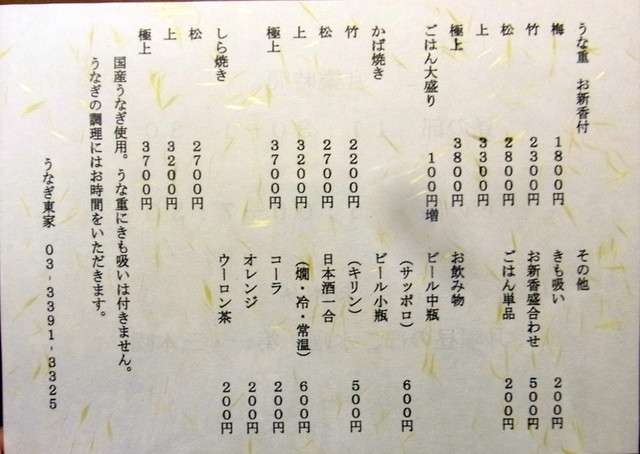 うな重　お新香付
梅　1800円
竹　2300円
松　2800円
上　3300円
極上　3800円
ごはん大盛り　100円増
かば焼き
竹　2200円
松　2700円
上　3200円
極上　3700円
しら焼き
松　2700円
上　3200円
極上　3700円
その他
きも吸い　200円
お新香盛合わせ　500円
ごはん単品　200円
お飲み物
ビール中瓶
（サッポロ）　600円
ビール小瓶
（キリン）　500円
日本酒一合
（燗・冷・常温）　600円
コーラ　200円
オレンジ　200円
ウーロン茶　200円
国産うなぎ使用。うな重にきも吸いは付きません。
うなぎの調理にはお時間をいただきます。
うなぎ東家　03-3391-3325